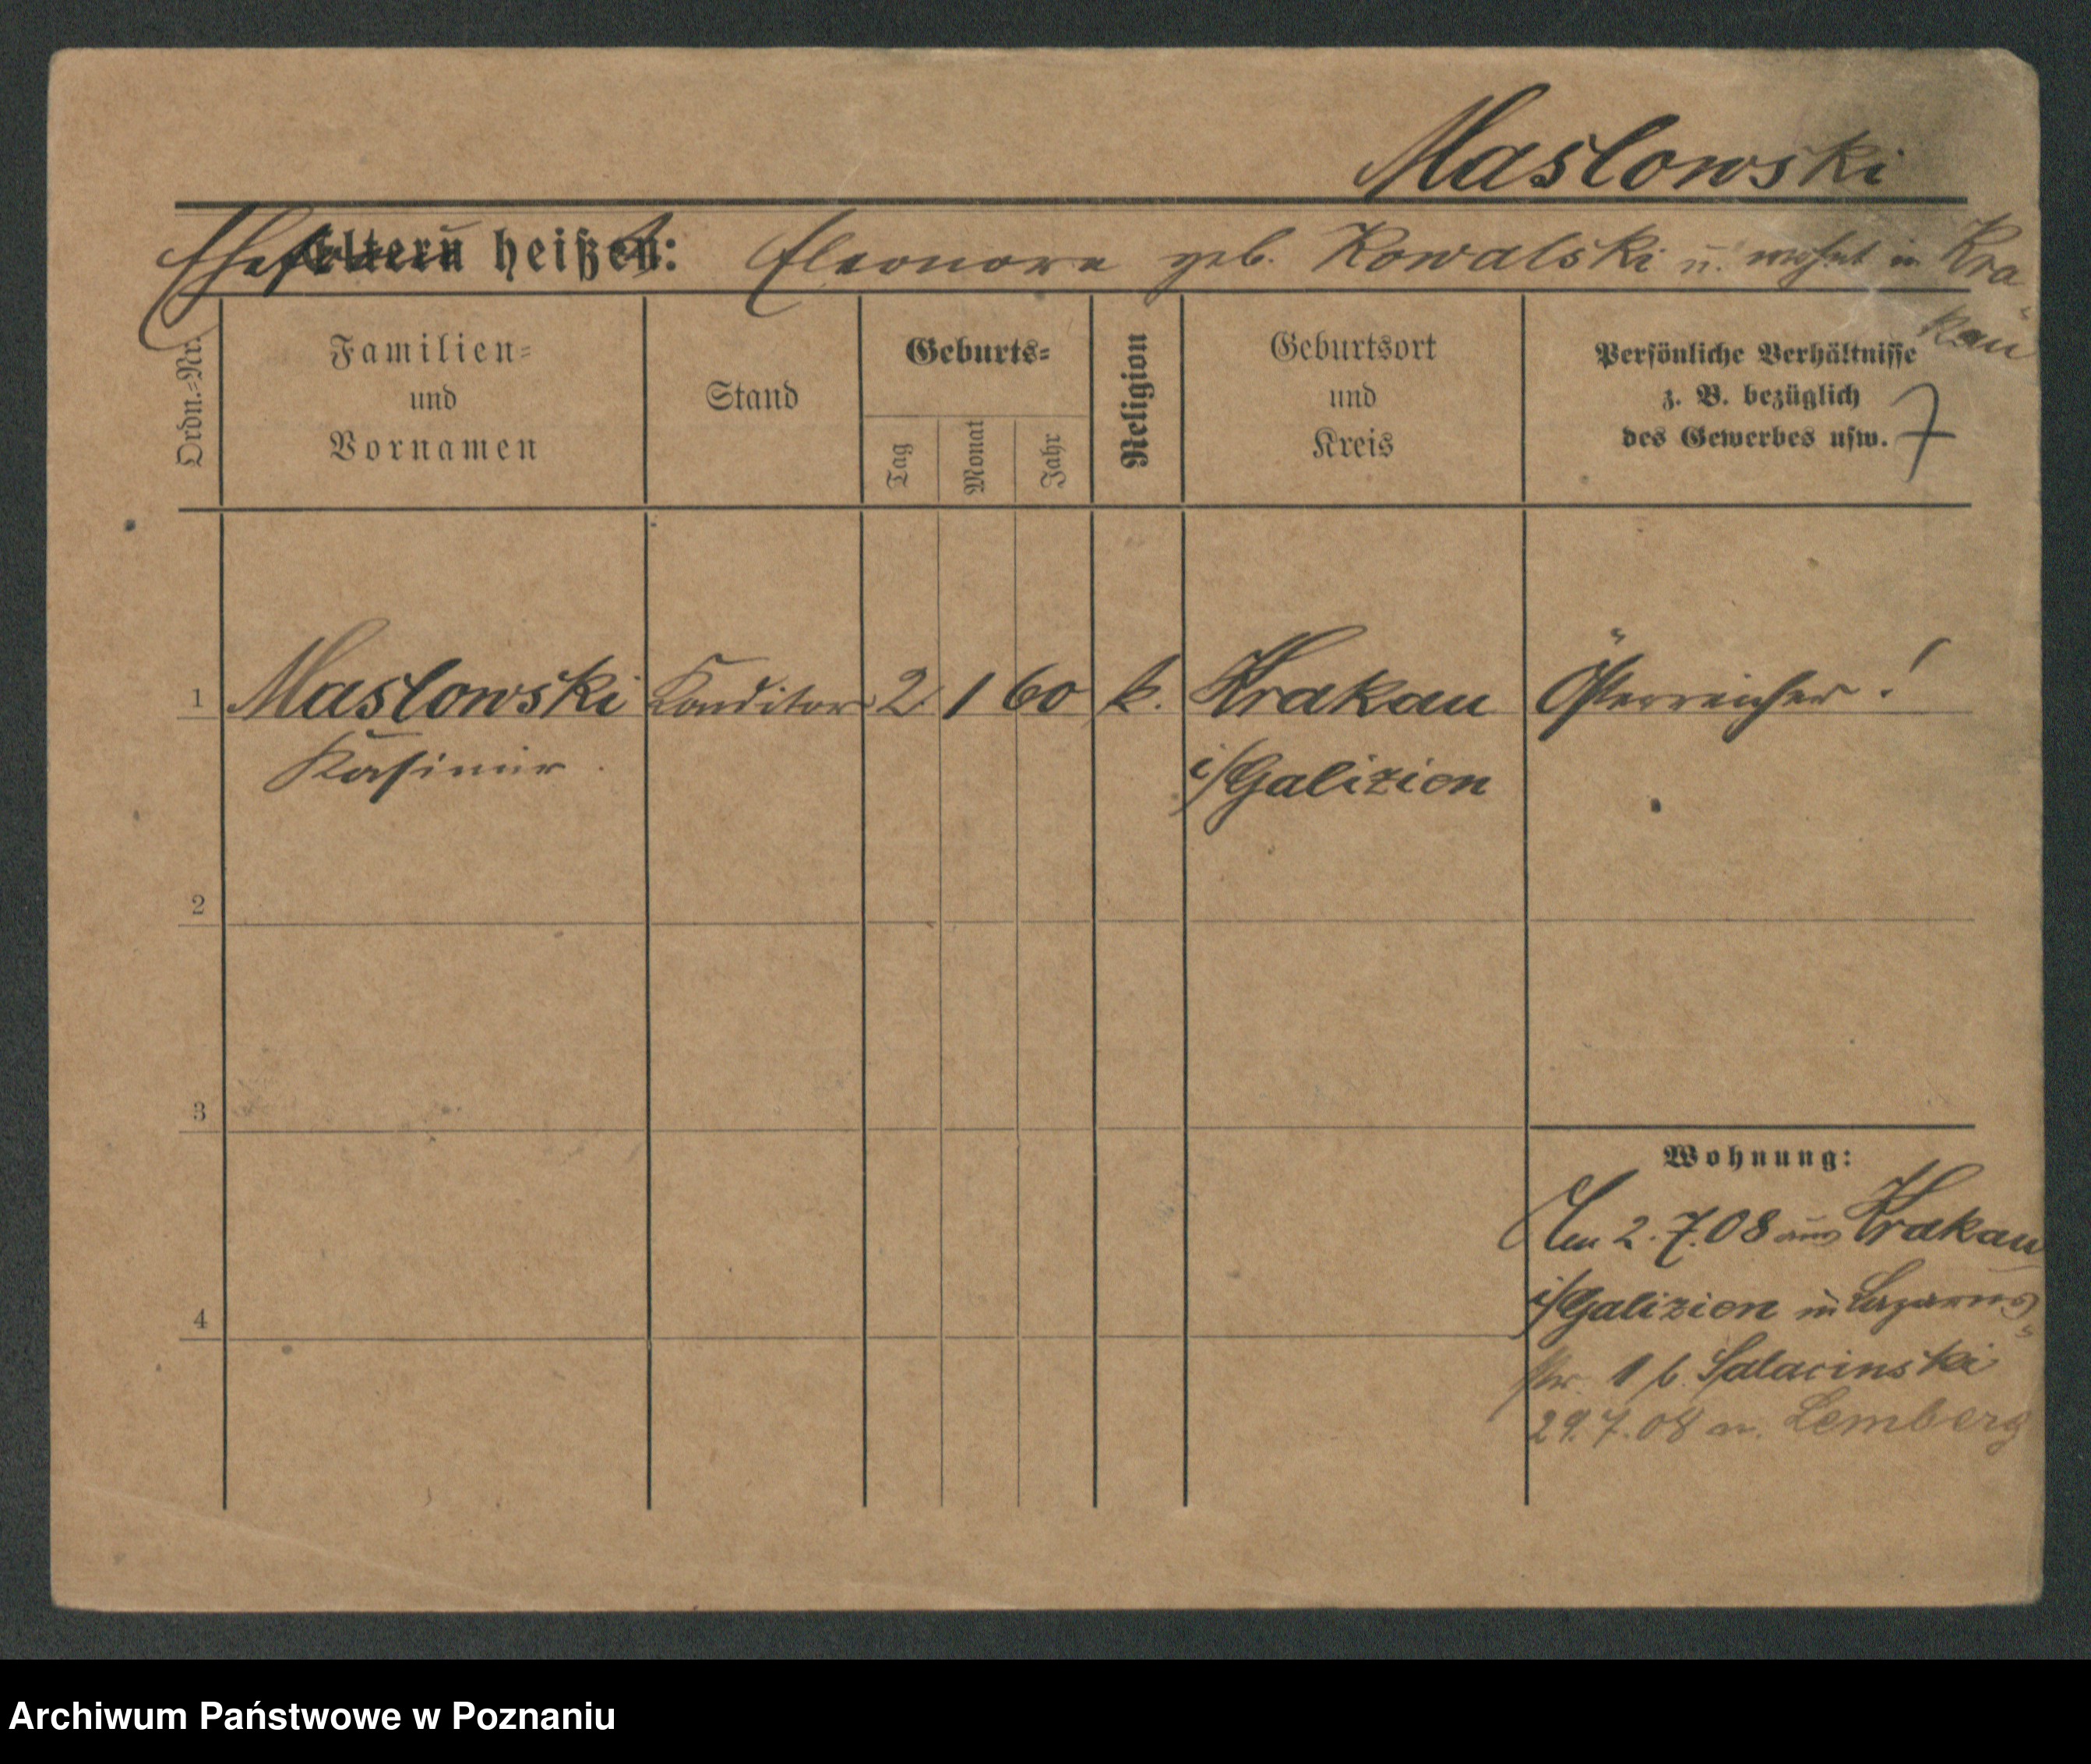 Maslowski
Ehefrau Eltern heißen: Eleonore geb. Kowalski u. wohnt in Kra-
kau
Ordn.-Nr.
Familien-
und
Vornamen
Stand
Geburts-
Tag
Monat
Jahr
Religion
Geburtsort
und
Kreis
Persönliche Verhältnisse
z. B. bezüglich
des Gewerbes usw.
7
1 Maslowski Konditor 2. 1 60 k. Krakau Österreicher!
Kasimir. i/Galizien
2
3
Wohnung:
Am 2.7.08 aus Krakau
i/Galizien in Lazarus-
4
str. 1 b. Salacinski
29.7.08 n. Lemberg
Archiwum Państwowe w Poznaniu